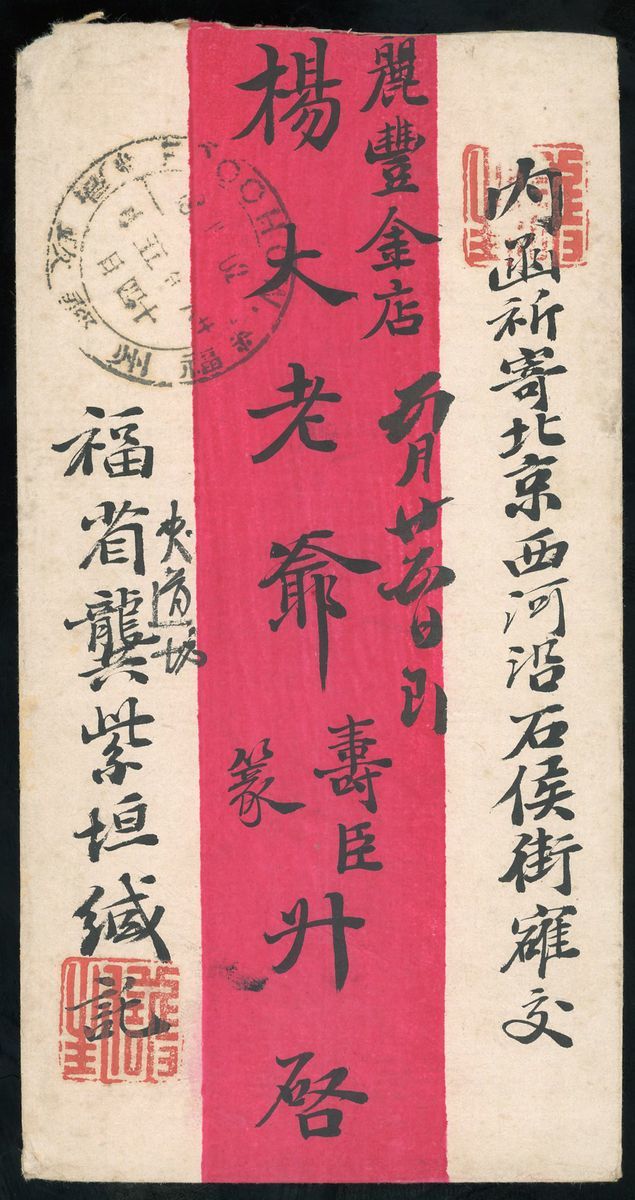 内函祈寄北京西河沿石侯街交
麗豐金店
五月廿五日
楊大老爺
壽臣
篆
升啓
夾道坊
福省龔紫垣緘託